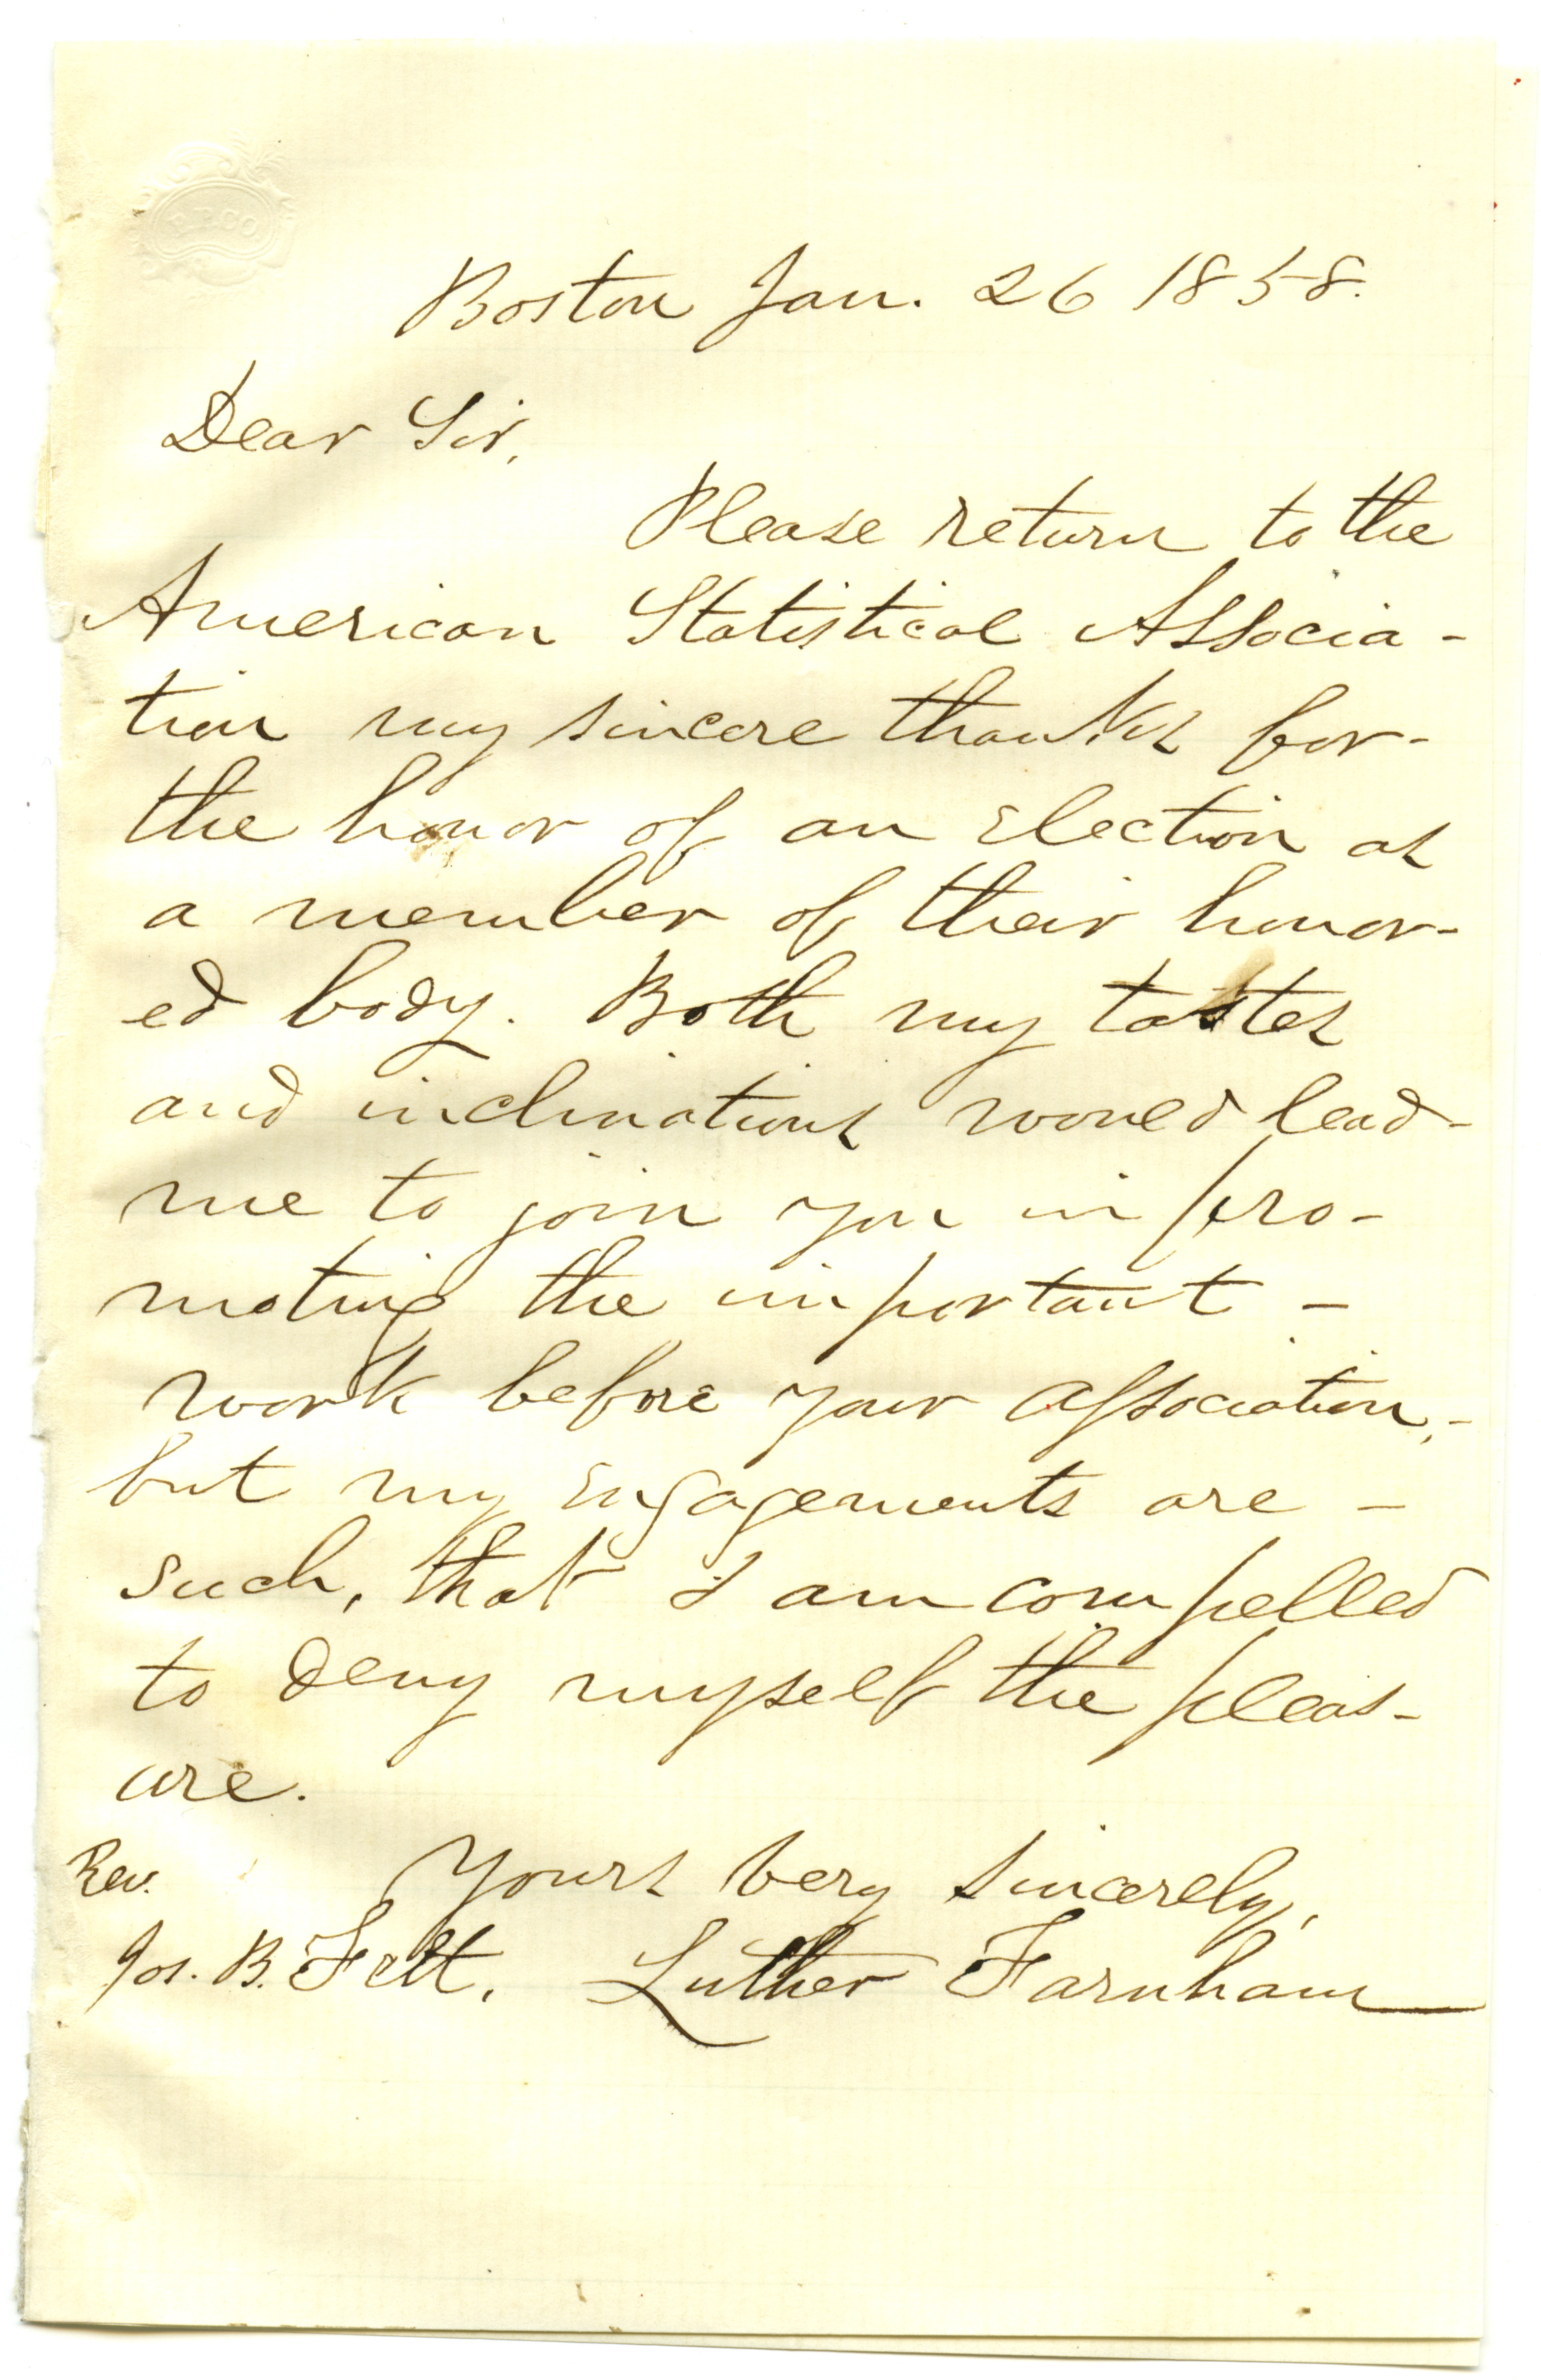 Boston Jan. 26 1858.
Dear Sir,
Please return to the
American Statistical Associa-
tion my sincere thanks for-
the honor of an election as
a member of their honor-
ed body. Both my tastes
and inclinations would lead-
me to join you in pro-
moting the important -
work before your association,-
but my engagements are -
such, that I am compelled
to deny myself the pleas-
ure.
Yours very sincerely,
Luther Farnham
Rev.
Jos. B. Felt.